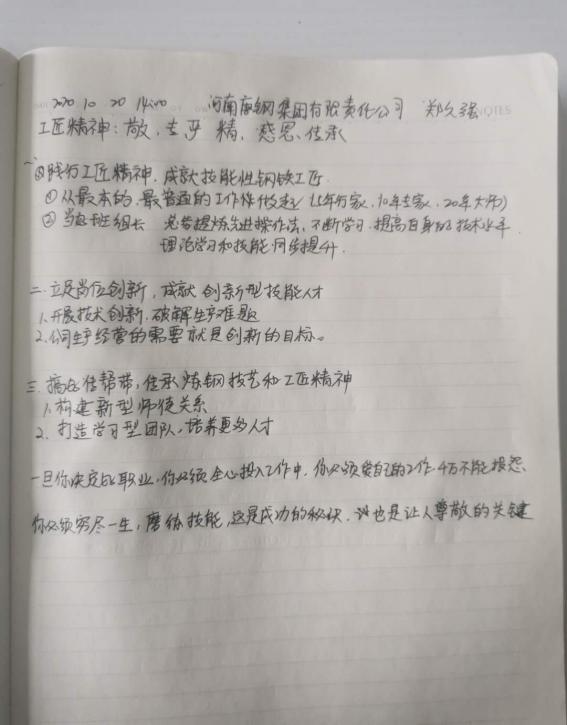 2020.10.20 14:00 河南唐钢集团有限责任公司 郑久强
工匠精神:敬、专、严、精、感恩、传承
一、践行工匠精神,成就技能性钢铁工匠
① 从最本的、最普通的工作做起 (5年行家、10年专家、20年大师)
② 当好班组长 总结提炼先进操作法,不断学习,提高自身的技术水平
理论学习和技能同步提升.
二. 立足岗位创新,成就创新型技能人才
1.开展技术创新,破解生产难题
2.公司生产经营的需要就是创新的目标。
三. 搞好传帮带,传承炼钢技艺和工匠精神
1.构建新型师徒关系
2. 打造学习型团队,培养更多人才
一旦你决定好职业,你必须全心投入工作中,你必须爱自己的工作,千万不能报怨、
你必须穷尽一生,磨练技能,这是成功的秘诀,也是让人尊敬的关键
NOTES